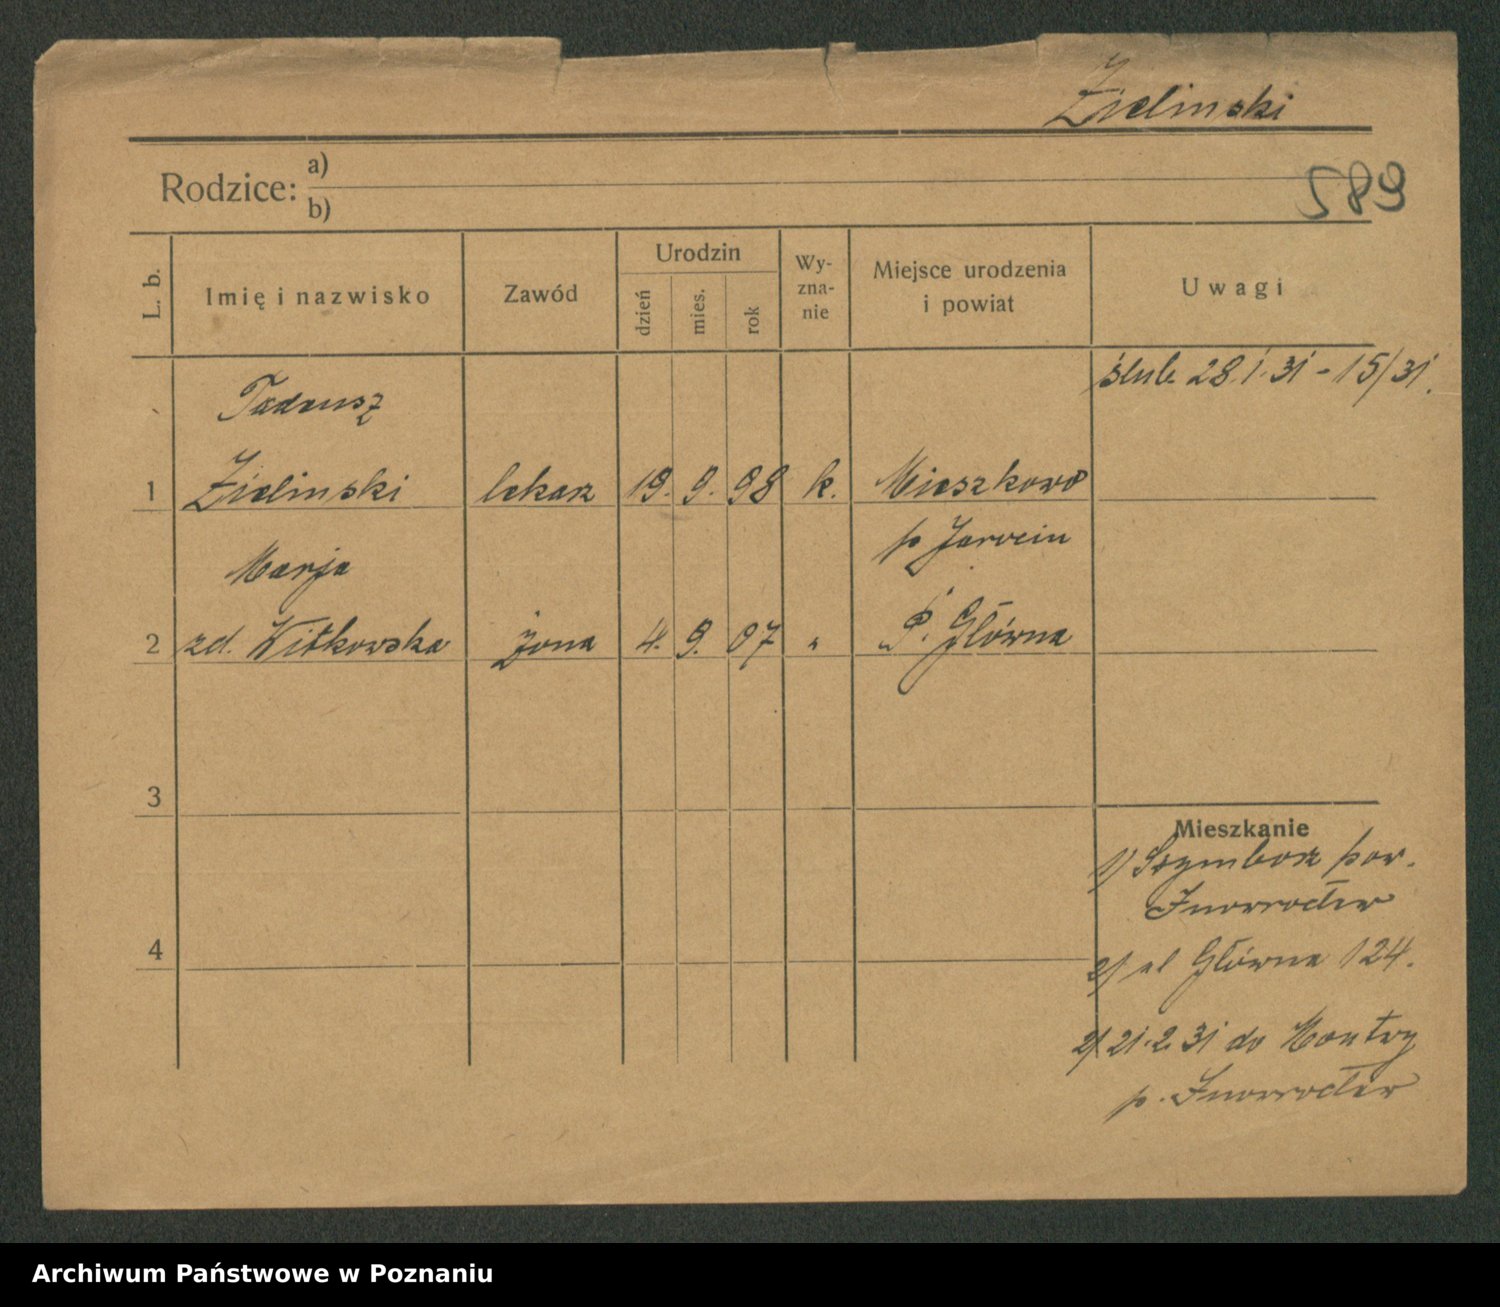 Zielinski
Rodzice: a)
b)
589
L. b.
Imię i nazwisko
Zawód
Urodzin
dzień
mies.
rok
Wy-
zna-
nie
Miejsce urodzenia
i powiat
Uwagi
ślub 28.1.31 - 15/31.
Tadeusz
1 Zielinski lekarz 19. 9. 98 k. Mieszkowo
p Jarocin
Marja
2 zd. Witkowska żona 4. 9. 07 " P. Główna
3
Mieszkanie
1) Szymborz pow.
Inowrocław
4
2) ul Główna 124.
2) 21.2.31 do Montwy
p. Inowrocław
Archiwum Państwowe w Poznaniu